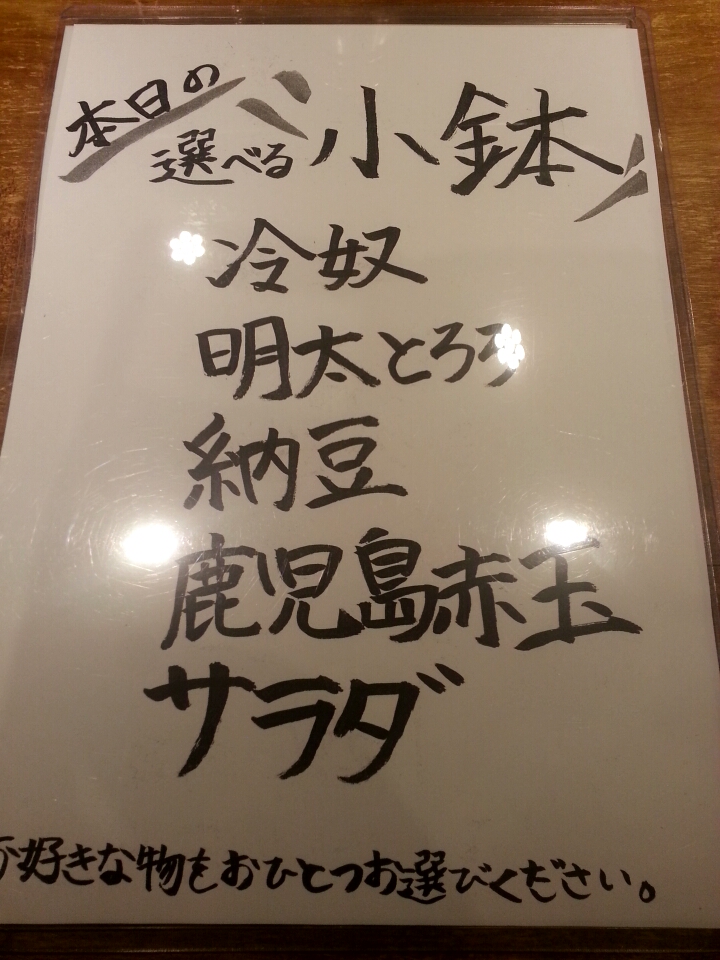 本日の
選べる小鉢
冷奴
明太とろろ
納豆
鹿児島赤玉
サラダ
お好きな物をおひとつお選びください。